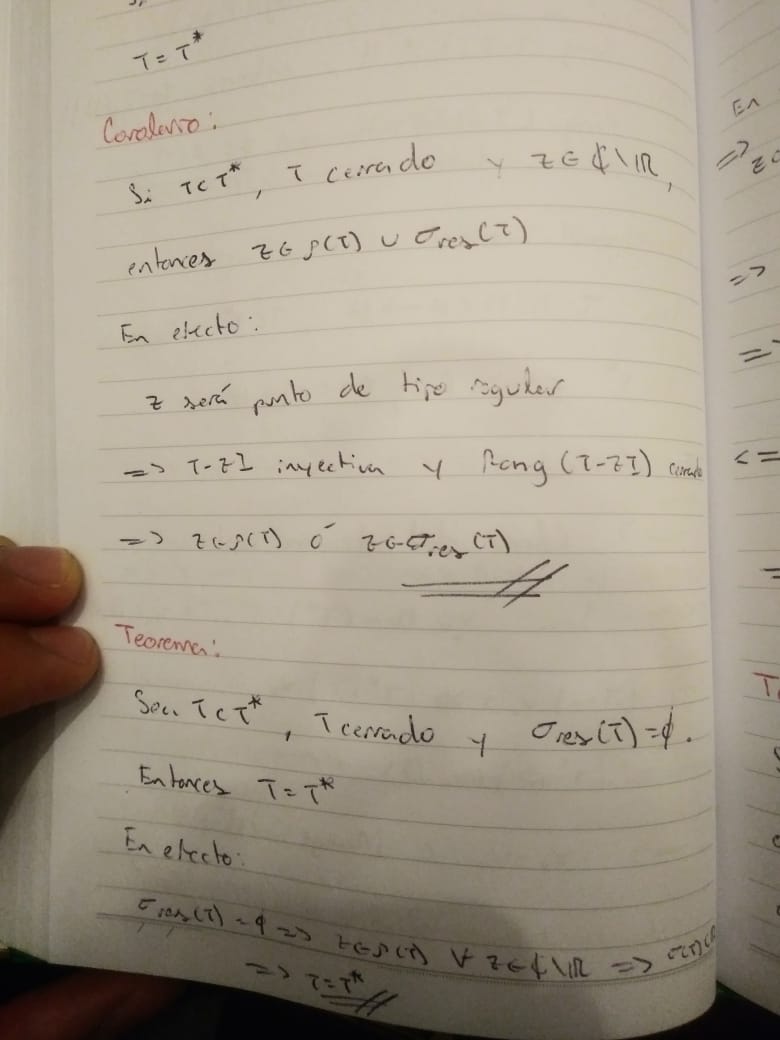 T = T*
Corolario:
Si T⊂T*, T cerrado y z ∈ ℂ\ℝ,
entonces z ∈ ρ(T) ∪ σres(T)
En efecto:
z será punto de tipo regular
=> T-zI inyectiva y Rang (T-zI) cerrado
=> z∈ρ(T) ó z∈σres(T)
Teorema:
Sea T⊂T*, T cerrado y σres(T)=ϕ.
Entonces T=T*
En efecto:
σres(T)=ϕ => z∈ρ(T) ∀ z∈ℂ\ℝ => σ(T)⊂ℝ
=> T=T*
En
=> z
=>
=>
<=